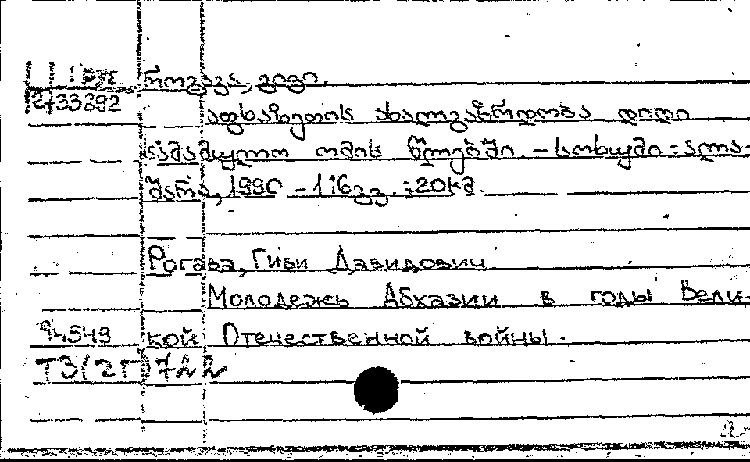 როგავა, გივი.
2/33292
აფხაზეთის ახალგაზრდობა დიდი
სამამულო ომის წლებში. - სოხუმი : ალა-
შარა, 1990 - 116გვ. : 20კმ
Рогава, Гиви Давидович
Молодежь Абхазии в годы Вели-
94.549 кой Отечественной войны.
Т3(2Г)722